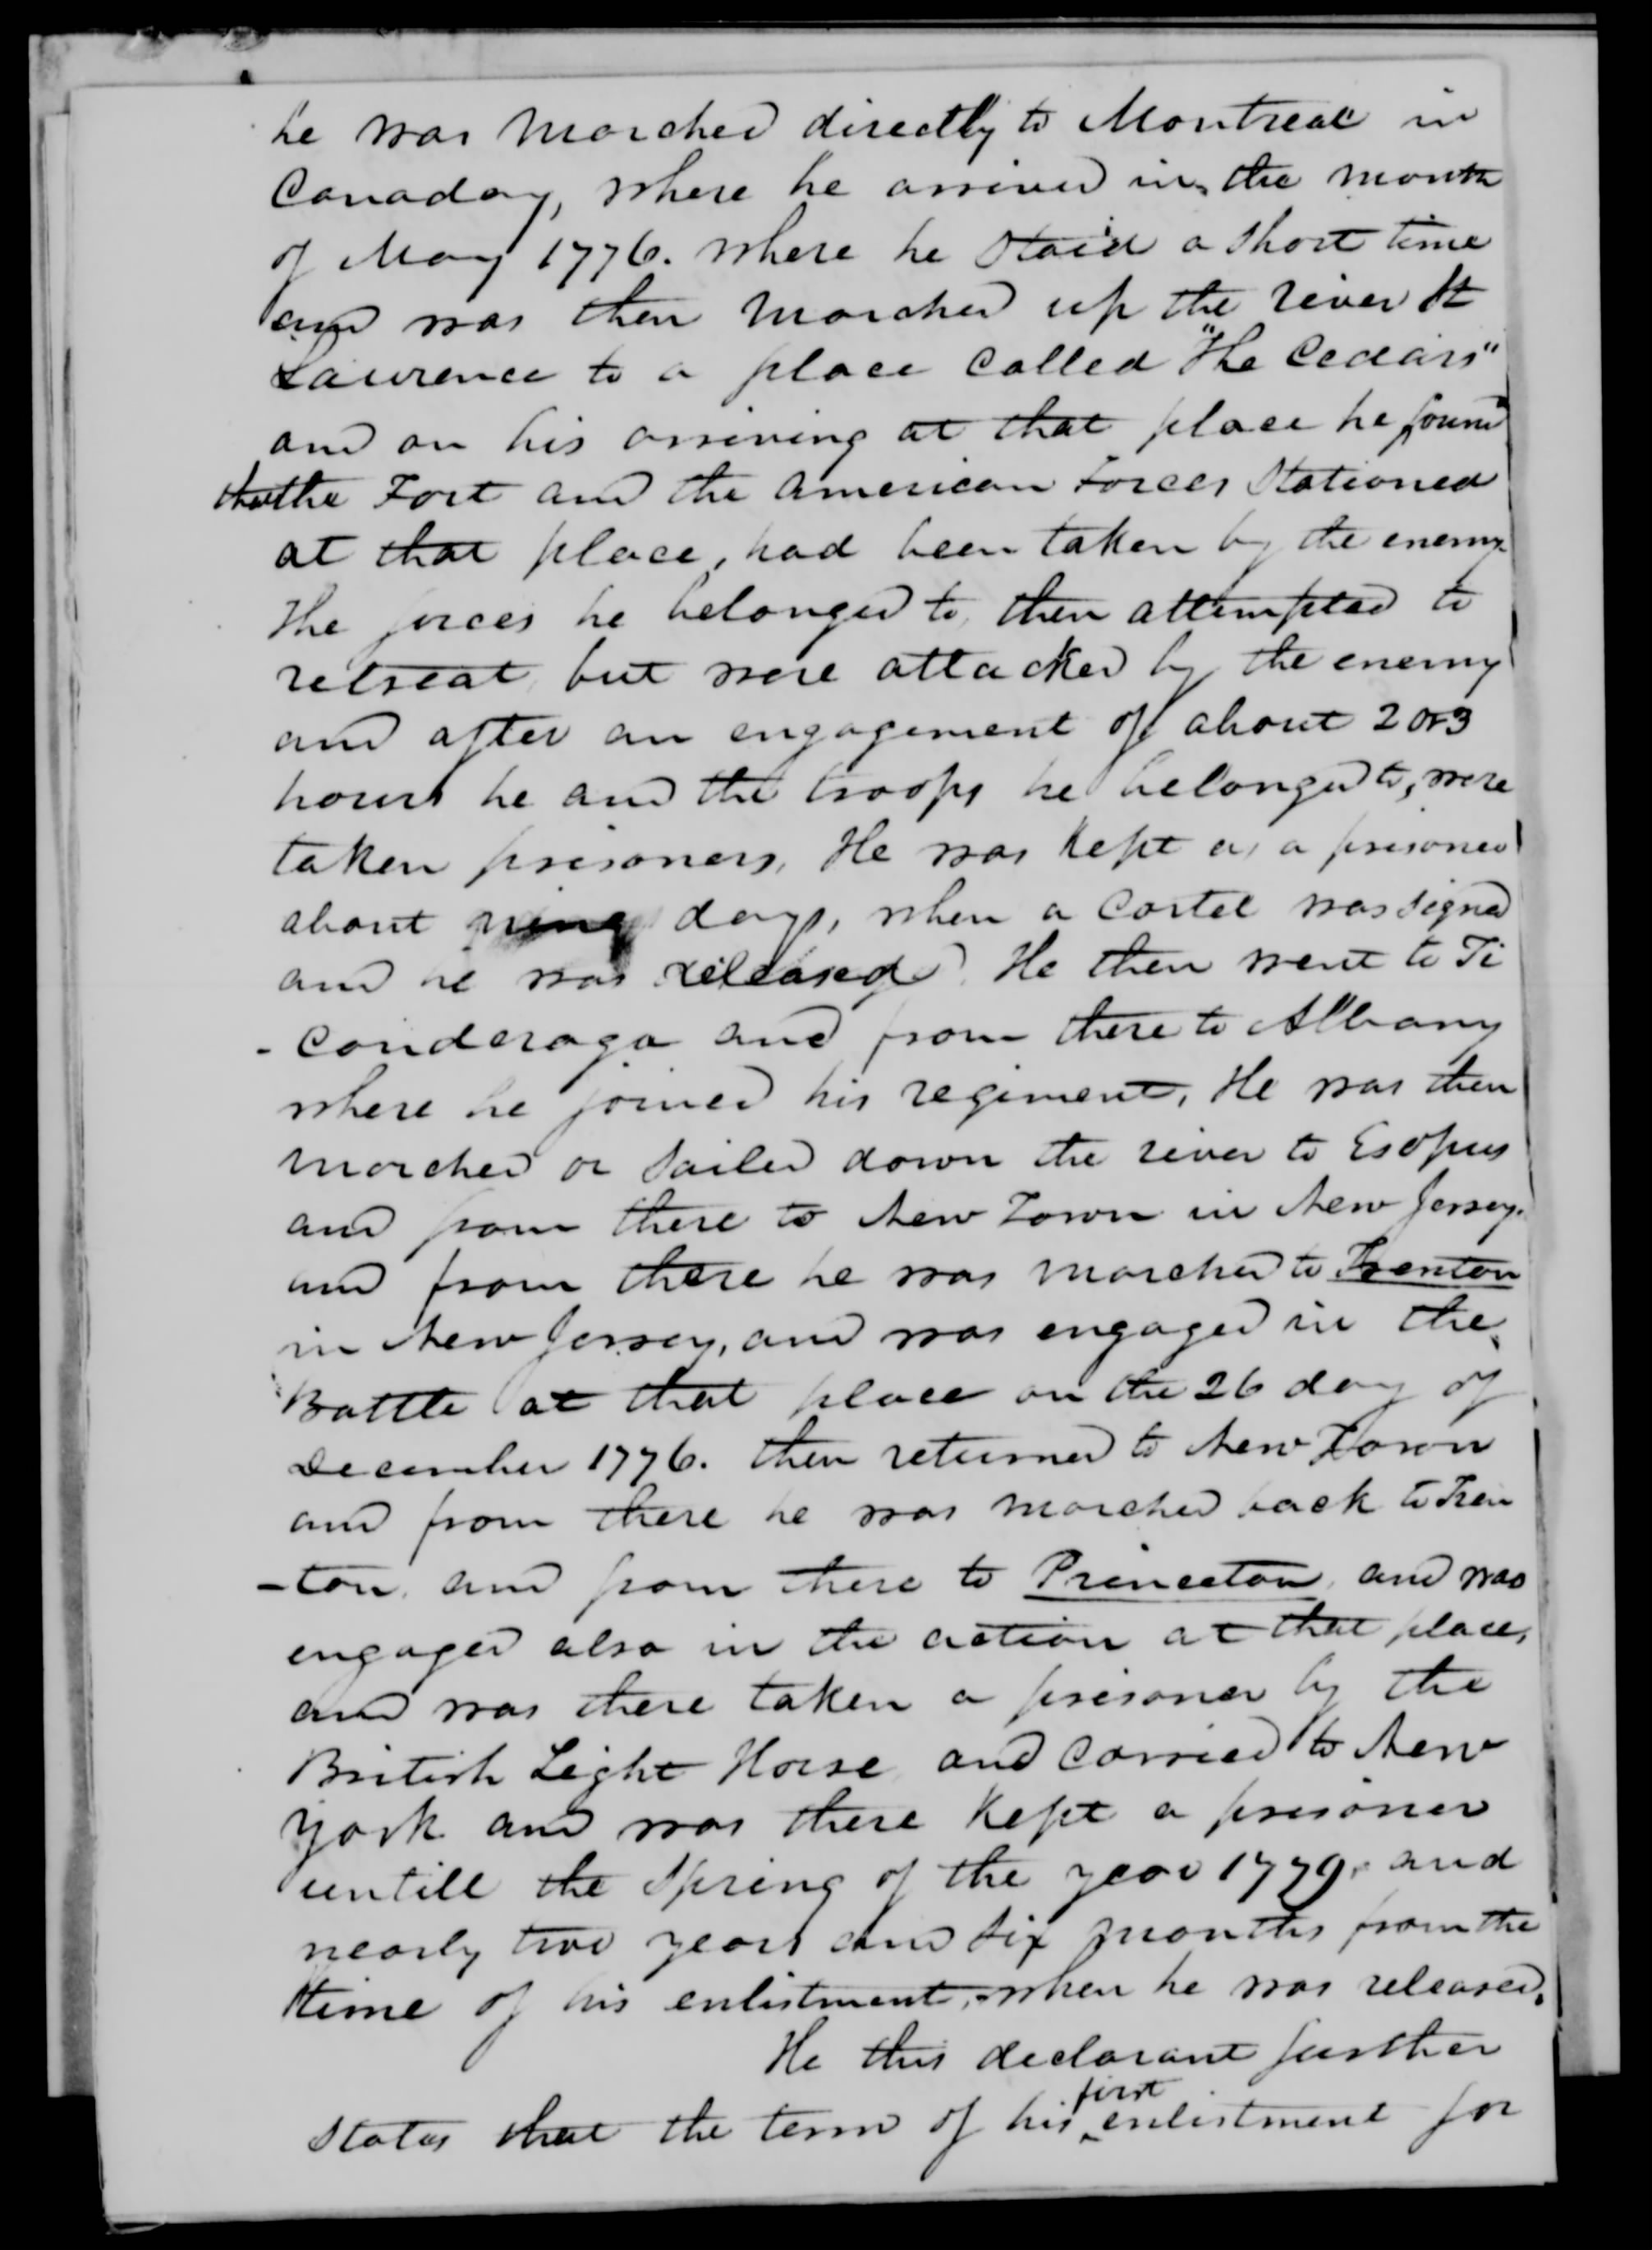 he was marched directly to Montreal in
Canaday, where he arrived in the month
of May 1776. where he Staid a Short time
and was then marched up the river St
Lawrence to a place called "The Cedars"
and on his arriving at that place he found
that the Fort and the American Forces Stationed
at that place, had been taken by the enemy.
The forces he belonged to, then attempted to
retreat, but were attacked by the enemy
and after an engagement of about 2 or 3
hours he and the troops he belonged to, were
taken prisoners, He was kept as a prisoner
about nine days, when a Cartel was signed
and he was released. He then went to Ti
-conderaga and from there to Albany
where he joined his regiment, He was then
marched or Sailed down the river to Esopus
and from there to New Town in New Jersey.
and from there he was marched to Trenton
in New Jersey, and was engaged in the
Battle at that place on the 26 day of
December 1776. then returned to New Town
and from there he was marched back to Tren
-ton, and from there to Princeton, and was
engaged also in the action at that place,
and was there taken a prisoner by the
British Light Horse and carried to New
York and was there kept a prisoner
untill the Spring of the year 1779, and
nearly two years and six months from the
time of his enlistment, when he was released.
He this declarant further
States that the term of his first enlistment for